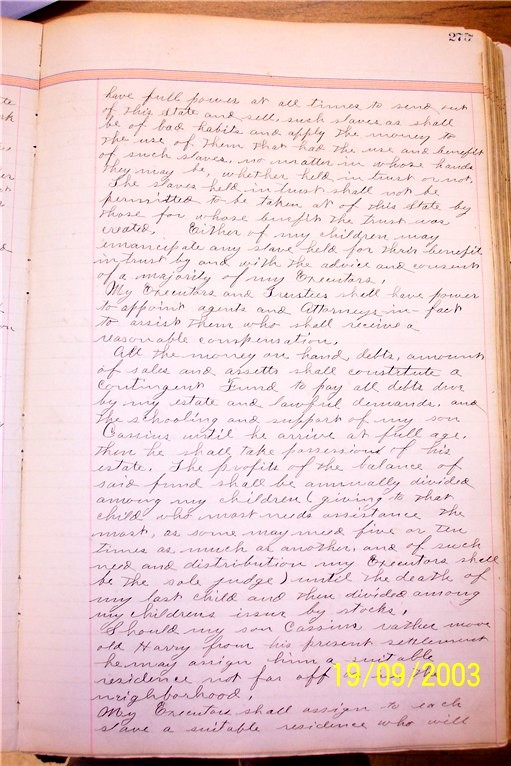 277
have full power at all times to send out
of this State and sell, such slaves as shall
be of bad habits and apply the money to
the use of them that had the use and benefit
of such slaves, no matter in whose hands
they may be, whether held in trust or not.
The slaves held in trust shall not be
permitted to be taken out of this State by
those for whose benefit the trust was
created. Either of my children may
emancipate any slave held for their benefit
in trust by and with the advice and consent
of a majority of my Executors.
My Executors and Trustees shall have power
to appoint agents and Attorneys-in-fact
to assist them who shall receive a
reasonable compensation.
All the money on hand, debts, amount
of sales and assetts shall constitute a
Contingent Fund to pay all debts due
by my estate and lawful demands, and
the schooling and support of my son
Cassius until he arrive at full age.
then he shall take possession of his
estate. The profits of the balance of
said fund shall be annually divided
among my children (giving to that
child who most needs assistance the
most, as some may need five or ten
times as much as another, and of such
need and distribution my Executors shall
be the sole judge) until the death of
my last child and then divided among
my childrens issue by stocks.
Should my son Cassius rather move
old Harry from his present settlement
he may assign him a suitable
residence not far off
neighborhood.
My Executors shall assign to each
slave a suitable residence who will
19/09/2003